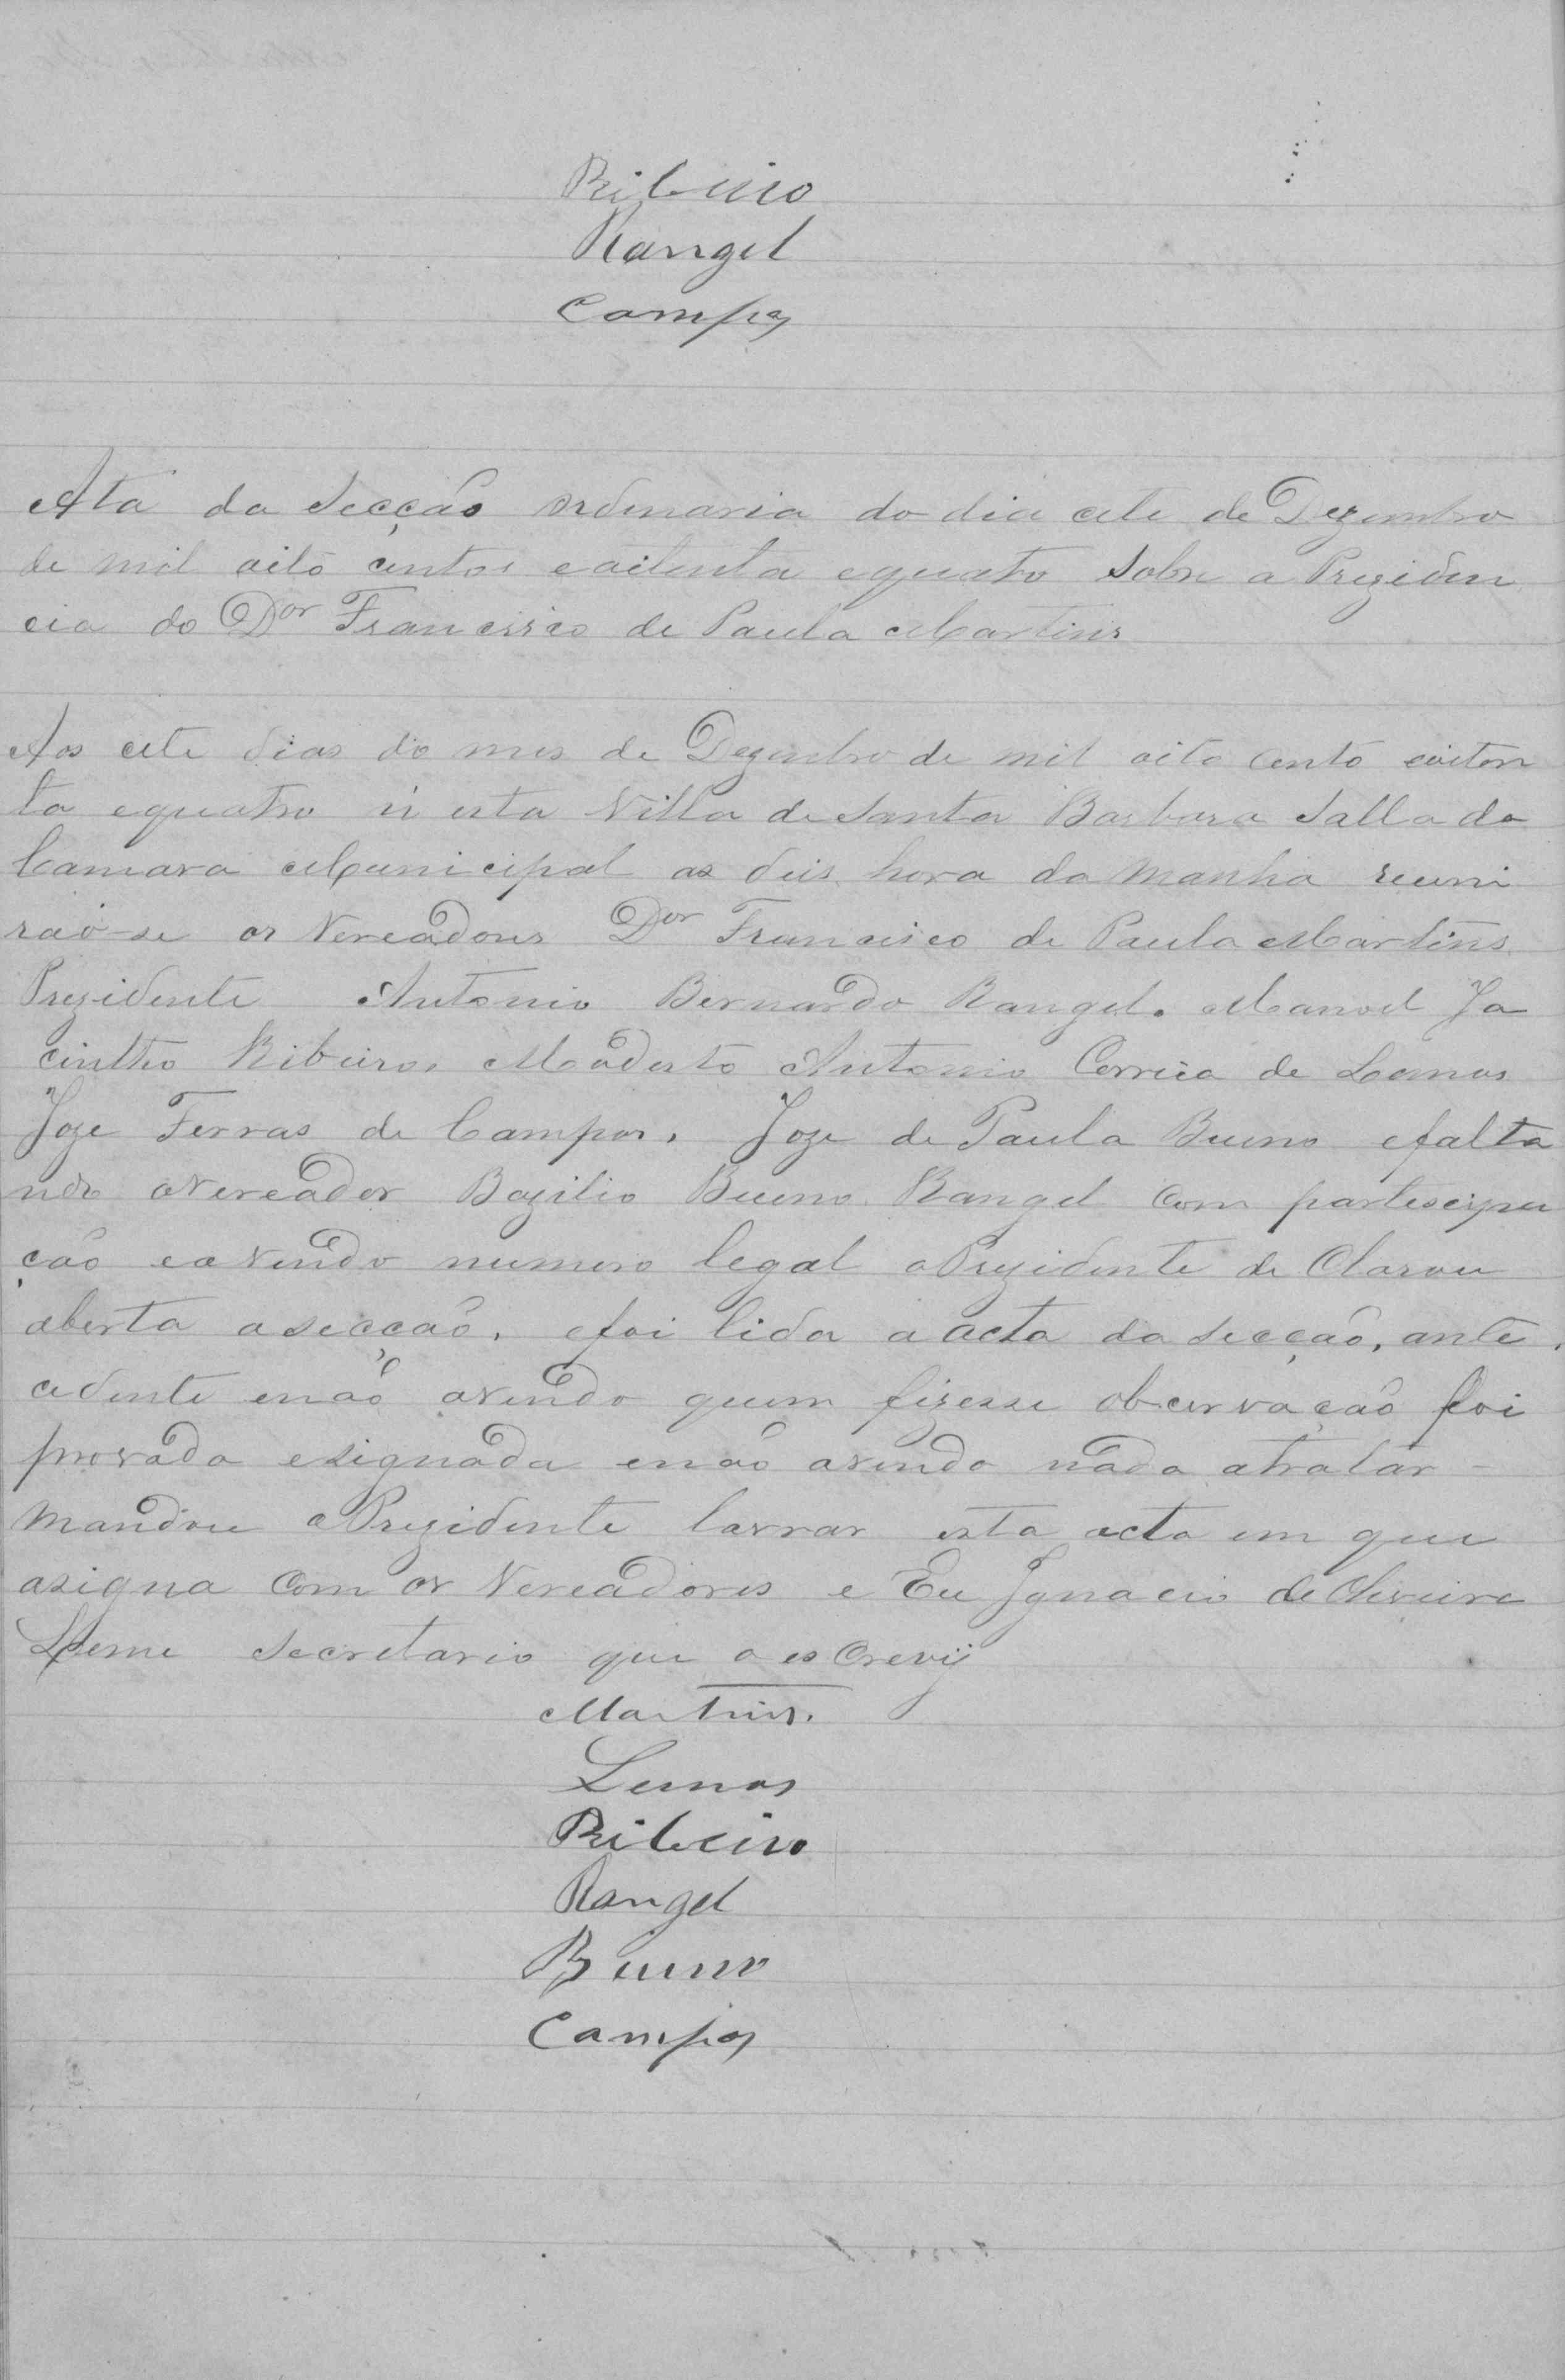 Ribeiro
Rangel
Campos
Ata da Secção ordenaria do dia cete de Dezembro
de mil oito centos eoitenta equatro Sobre a Preziden
cia do Dor Francisco de Paula Martins
Aos cete dias do mes de Dezembro de mil oito cento eoiten
ta equatro n'esta Villa de Santa Barbara Salla da
Camara Municipal as deis hora da Manha reuni
rão-se os Vereadores Dor Francisco de Paula Martins
Prezidente Antonio Bernardo Rangel. Manoel Ja
cintho Ribeiro, Modesto Antonio Correia de Lemos
Joze Ferras de Campos, Joze de Paula Bueno efalta
ndo oVereador Bazilio Bueno Rangel Com partescipa
ção eavendo numero legal oPrezidente de Clarou
aberta asecção, efoi lida a acta da secção, ante
cedente enão avendo quem fizesse obcervação foi
provada esignada enão avendo nada atratar
Mandou oPrezidente lavrar esta acta em que
asigna Com os Vereadores e Eu Ignacio de Oliveira
Leme Secretario que o es Crevij
Martins.
Lemos
Ribeiro
Rangel
Bueno
Campos